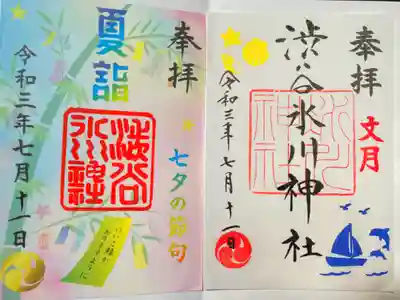 奉拝
夏詣
渋谷
氷川神社
七夕の節句
令和三年七月十一日
奉拝
文月
渋谷氷川神社
令和三年七月十一日